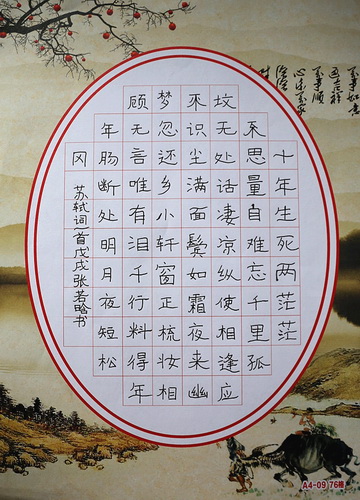 十年生死两茫茫
不思量自难忘千里孤
坟无处话凄凉纵使相逢应
不识尘满面鬓如霜夜来幽
梦忽还乡小轩窗正梳妆相
顾无言唯有泪千行料得年
年肠断处明月夜短松
冈
苏轼词一首戊戌张若晗书
A4-09 76